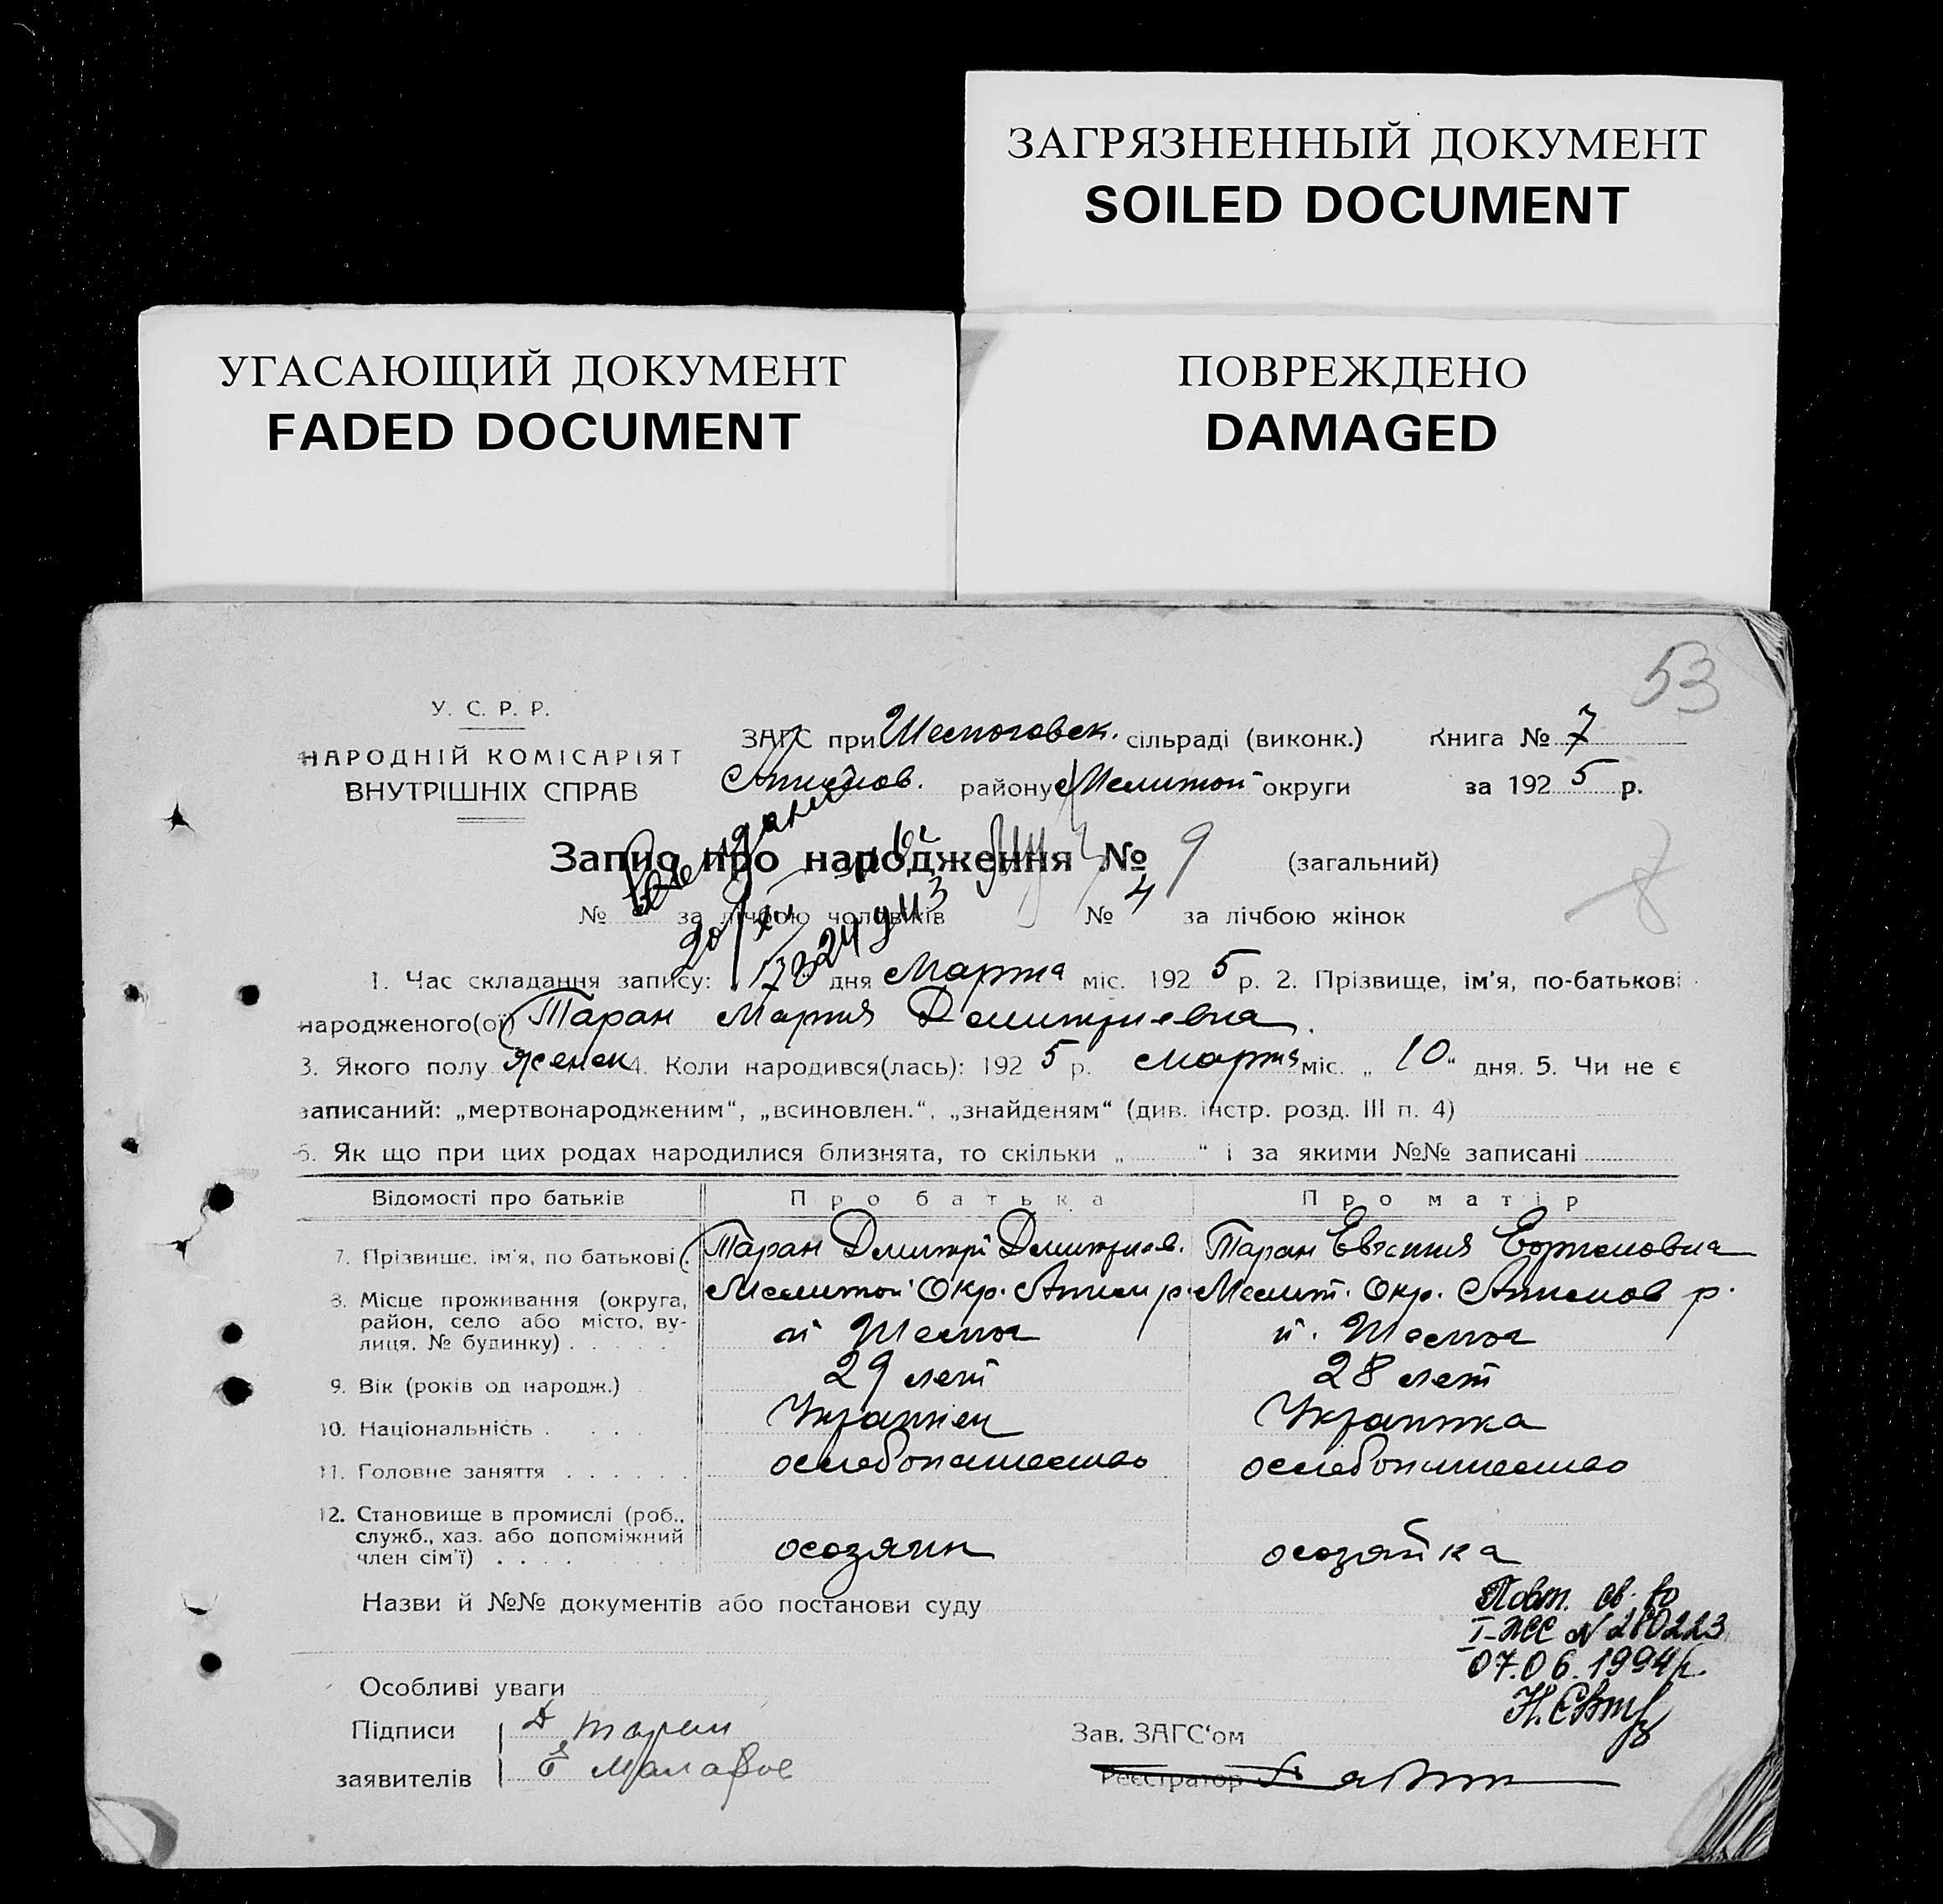 ЗАГРЯЗНЕННЫЙ ДОКУМЕНТ
SOILED DOCUMENT
УГАСАЮЩИЙ ДОКУМЕНТ
FADED DOCUMENT
ПОВРЕЖДЕНО
DAMAGED
53
У. С. Р. Р.
НАРОДНІЙ КОМІСАРІЯТ
ВНУТРІШНІХ СПРАВ
ЗАГС при сільраді (виконк.) Книга № 7
району Мелитоп округи за 1925 р.
Запис про народження № 9 (загальний)
8
№ за лічбою чоловіків № 4 за лічбою жінок
1. Час складання запису: дня Марта міс. 1925 р. 2. Прізвище, ім'я, по-батькові
народженого(ої) Таран Мария Демитриевна.
3. Якого полу женск 4. Коли народився(лась): 1925 р. марта міс. „10" дня. 5. Чи не є
записаний: „мертвонародженим", „всиновлен.", „знайденям" (див. інстр. розд. III п. 4)
6. Як що при цих родах народилися близнята, то скільки „ " і за якими №№ записані
Відомості про батьків Про батька Про матір
7. Прізвище, ім'я, по батькові Таран Демитрі Демитриев. Таран Евгения
8. Місце проживання (округа, Мелитоп Окр. р. Мелит. Окр. р.
район, село або місто, ву-
лиця, № будинку)
9. Вік (років од народж.) 29 лет 28 лет
10. Національність Украинец Украинка
11. Головне заняття хлебопашество хлебопашество
12. Становище в промислі (роб.,
служб., хаз. або допоміжний
член сім'ї) хозяин хозяйка
Назви й №№ документів або постанови суду
Повт. св-во
I-ЖС № 280223
07.06.1994р.
Особливі уваги
Підписи Д Таран
Зав. ЗАГС'ом
заявителів Е
Реєстратор